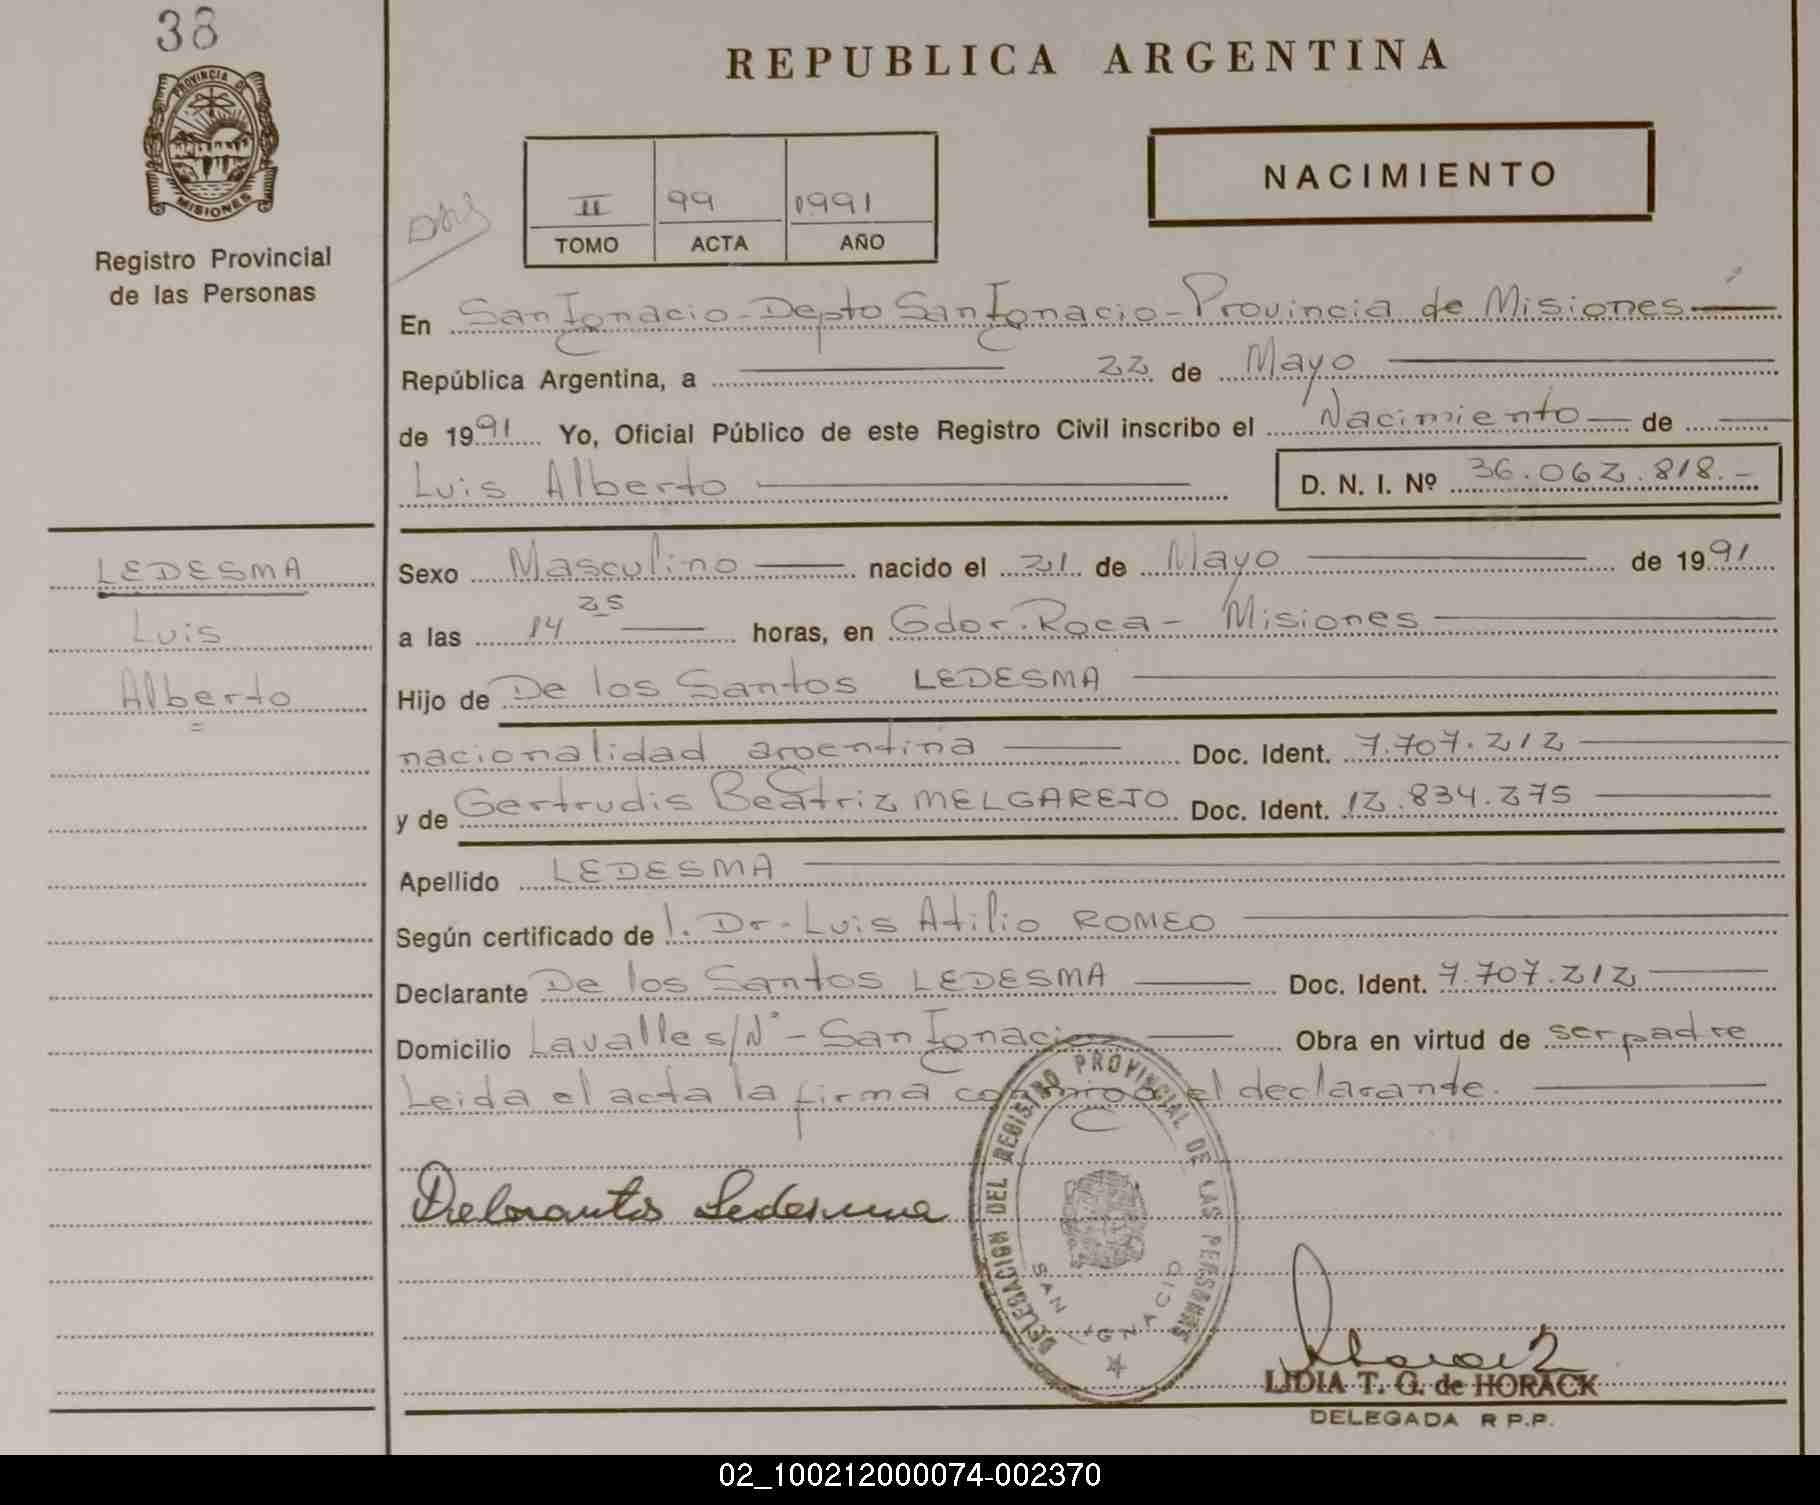 38
PROVINCIA DE
MISIONES
Registro Provincial
de las Personas
REPUBLICA ARGENTINA
NACIMIENTO
II 99 1991
TOMO ACTA AÑO
En San Ignacio - Depto San Ignacio - Provincia de Misiones
República Argentina, a 22 de Mayo
de 1991 Yo, Oficial Público de este Registro Civil inscribo el Nacimiento de
Luis Alberto D. N. I. Nº 36.062.818.-
LEDESMA
Luis
Alberto
Sexo Masculino nacido el 21 de Mayo de 1991
a las 14 25 horas, en Gdor. Roca - Misiones
Hijo de De los Santos LEDESMA
nacionalidad argentina Doc. Ident. 7.707.212
y de Gertrudis Beatriz MELGAREJO Doc. Ident. 12.834.275
Apellido LEDESMA
Según certificado de l. Dr. Luis Atilio ROMEO
Declarante De los Santos LEDESMA Doc. Ident. 7.707.212
Domicilio Lavalle s/Nº - San Ignacio Obra en virtud de ser padre
Leida el acta la firma conmigo el declarante.
Delosantos Ledesma
DELEGACION DEL REGISTRO PROVINCIAL DE LAS PERSONAS
SAN IGNACIO
LIDIA T. G. de HORACK
DELEGADA R P.P.
02_100212000074-002370